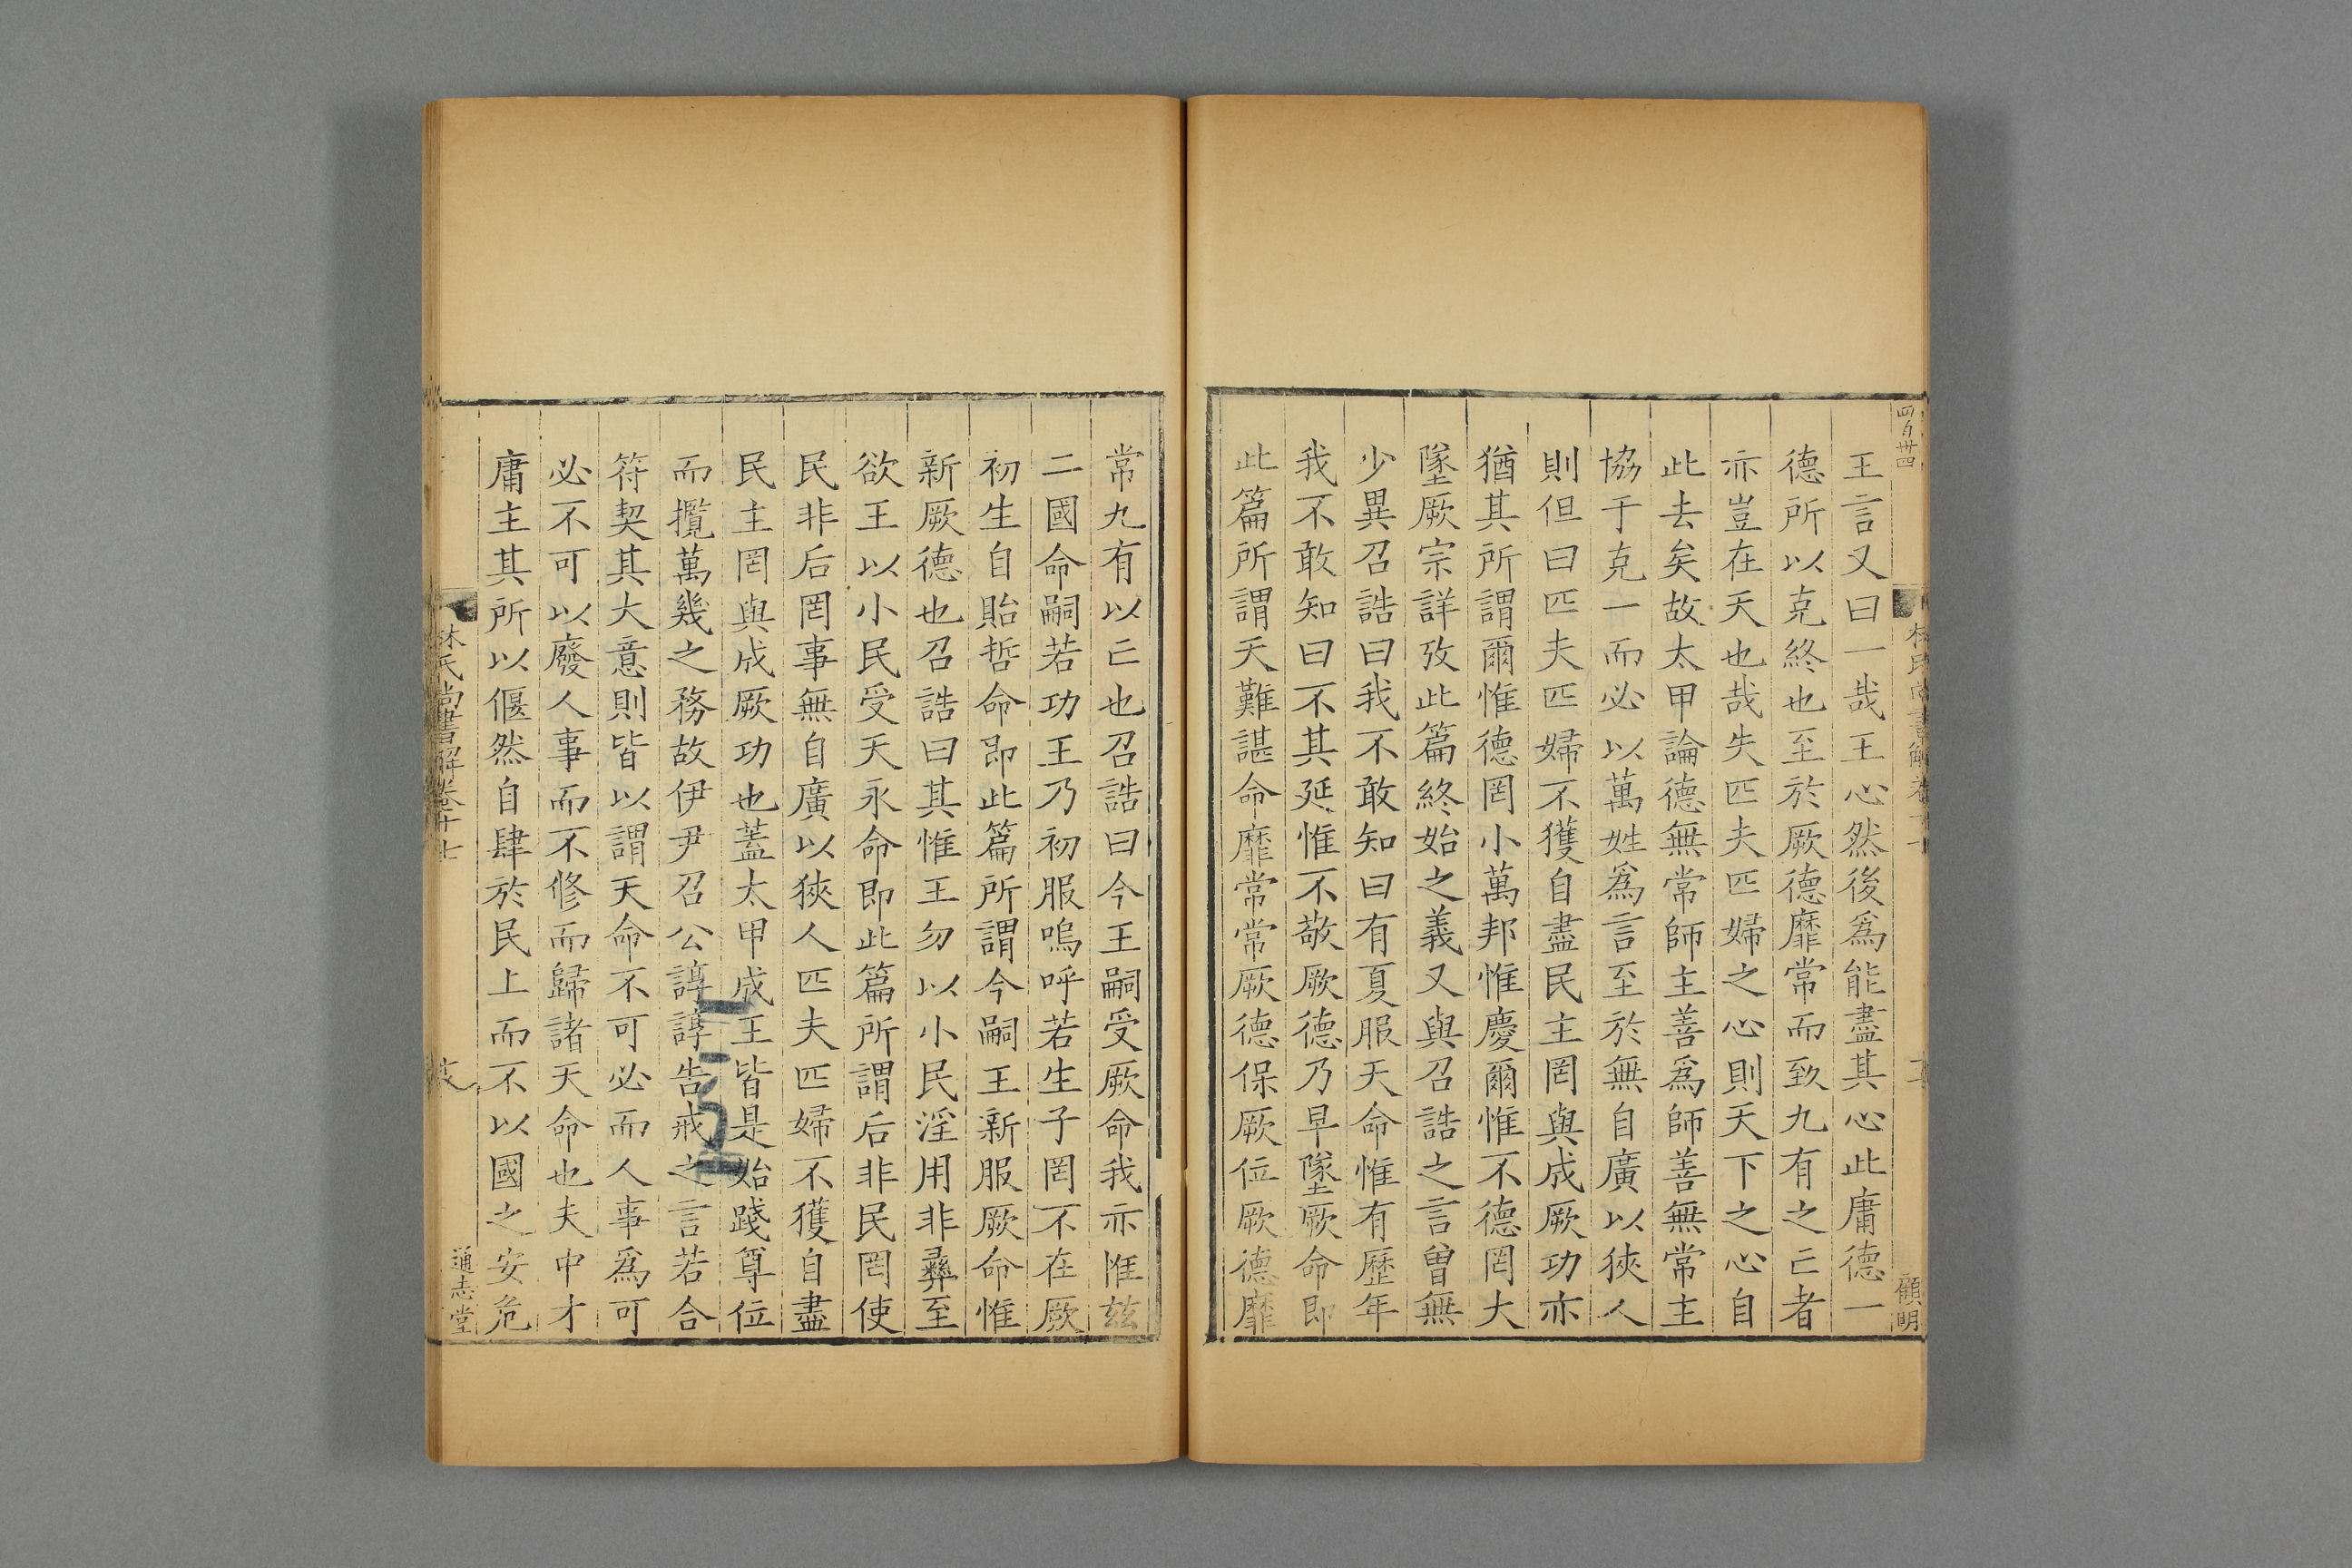 四百卅四
林氏尚書解卷十
顧明
王言又曰一哉王心然後爲能盡其心此庸德一
德所以克終也至於厥德靡常而致九有之亡者
亦豈在天也哉失匹夫匹婦之心則天下之心自
此去矣故太甲論德無常師主善爲師善無常主
協于克一而必以萬姓爲言至於無自廣以狹人
則但曰匹夫匹婦不獲自盡民主罔與成厥功亦
猶其所謂爾惟德罔小萬邦惟慶爾惟不德罔大
墜厥宗詳攷此篇終始之義又與召誥之言曾無
少異召誥曰我不敢知曰有夏服天命惟有歷年
我不敢知曰不其延惟不敬厥德乃早墜厥命即
此篇所謂天難諶命靡常常厥德保厥位厥德靡
常九有以亡也召誥曰今王嗣受厥命我亦惟玆
二國命嗣若功王乃初服嗚呼若生子罔不在厥
初生自貽哲命即此篇所謂今嗣王新服厥命惟
新厥德也召誥曰其惟王勿以小民淫用非彝至
欲王以小民受天永命即此篇所謂后非民罔使
民非后罔事無自廣以狹人匹夫匹婦不獲自盡
民主罔與成厥功也蓋太甲成王皆是始踐尊位
而攬萬幾之務故伊尹召公諄諄告戒之言若合
符契其大意則皆以謂天命不可必而人事爲可
必不可以廢人事而不修而歸諸天命也夫中才
庸主其所以偃然自肆於民上而不以國之安危
林氏尚書解卷十七
通志堂